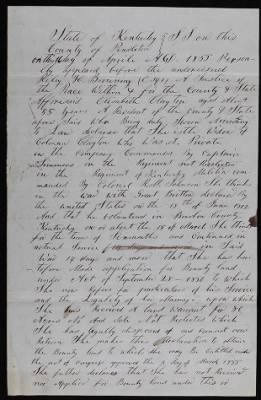 State of Kentucky } SS on this
County of Pendleton
day of April A.D. 1855 Person-
ally appeared before the undersigned
H. Browning Esqr. A Justice of
the Peace Within & for the County & State
Aforesaid Elizabeth Clayton aged about
55 years A Resident of the County & State
afore Said Who Being duly Sworn According
to Law declares that She is the Widow of
Coleman Clayton who Was a Private
in the Company Commanded By Captain
Simmons in the Regiment
in the Regiment of Kentucky Militia com-
manded By Colonel R. M. Johnson She think
in the War With Great Brittan declared By
the United States on the 18th of June 1812
And that he Volunteered in
Kentucky on or about the 15 of March She thinks
for the term of Six months and Continued in
actual Service in Said
War 14 days and more that She has her
tofore Made application for Bounty land
under Act of September 28 1850 to Which
She now Refers for particulars of his Service
and the Legality of her Marriage upon which
She Received A land Warrant for 40
Acres No And date Not Recollected Which
She has legally disposed of and cannot now
Return She makes this declaration to obtain
the Bounty land to which She may Be Entitled under
the act of congress approved the 3 day of March 1855
She further declares that She has not Received
nor Applied for Bounty Land under this or